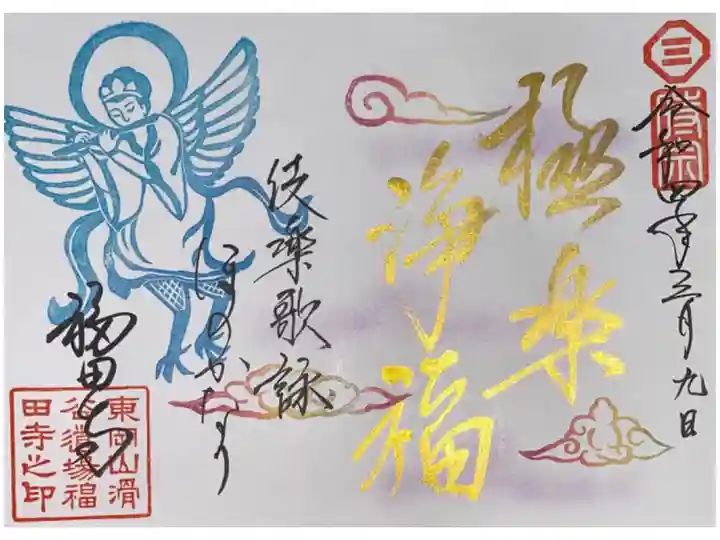 三
令和四年三月九日
極楽
浄福
伎樂歌詠
ほのかなり
福田寺
東岡山滑
谷道場福
田寺之印